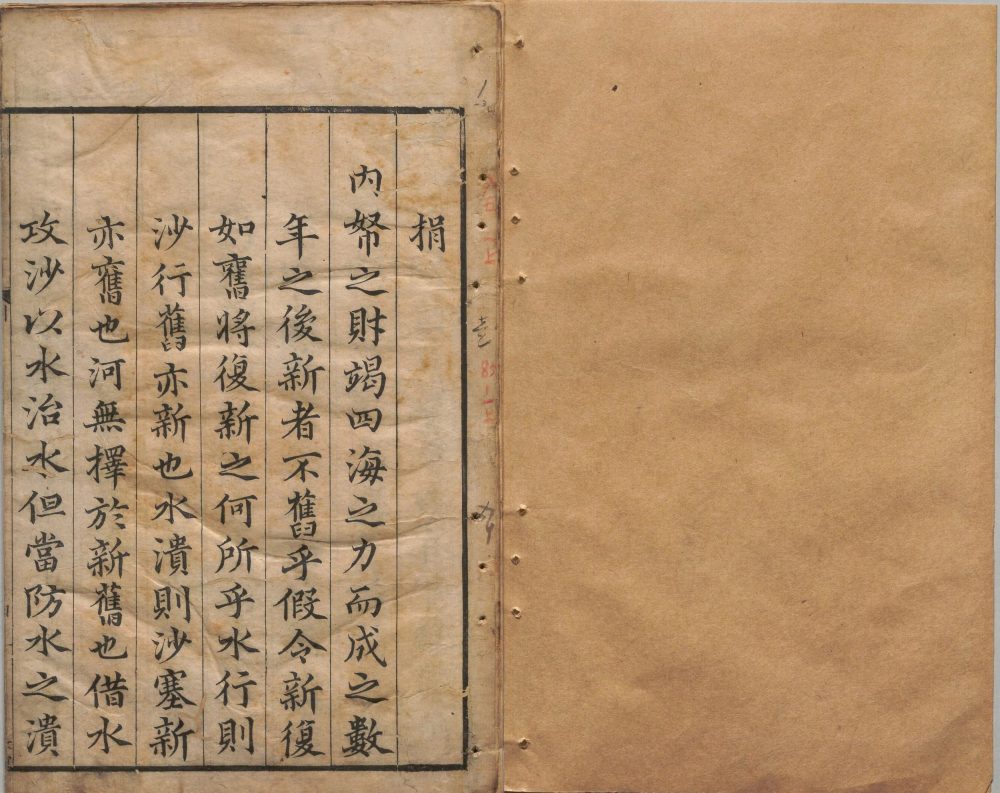 捐
内帑之財竭四海之力而成之數
年之後新者不舊乎假令新復
如舊將復新之何所乎水行則
沙行舊亦新也水潰則沙塞新
亦舊也河無擇於新舊也借水
攻沙以水治水但當防水之潰